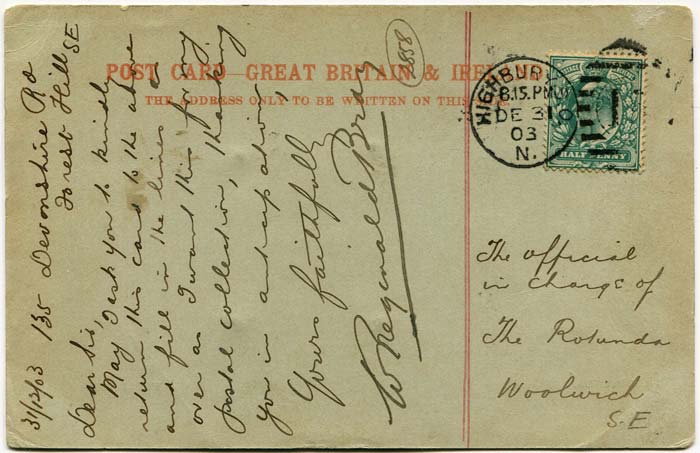 POST CARD—GREAT BRITAIN & IRELAND
THE ADDRESS ONLY TO BE WRITTEN ON THIS
2858
31/12/03 135 Devonshire Rd
Forest Hill SE
Dear Sir,
May I ask you to kindly
return this card to the above
and fill in the lines
over as I want this for my
postal collection, thanking
you in anticipation
Yours faithfully
W Reginald Bray
HIGHBURY
8.15.PM
DE 31
03
N.
HALFPENNY
The official
in charge of
The Rotunda
Woolwich
S.E